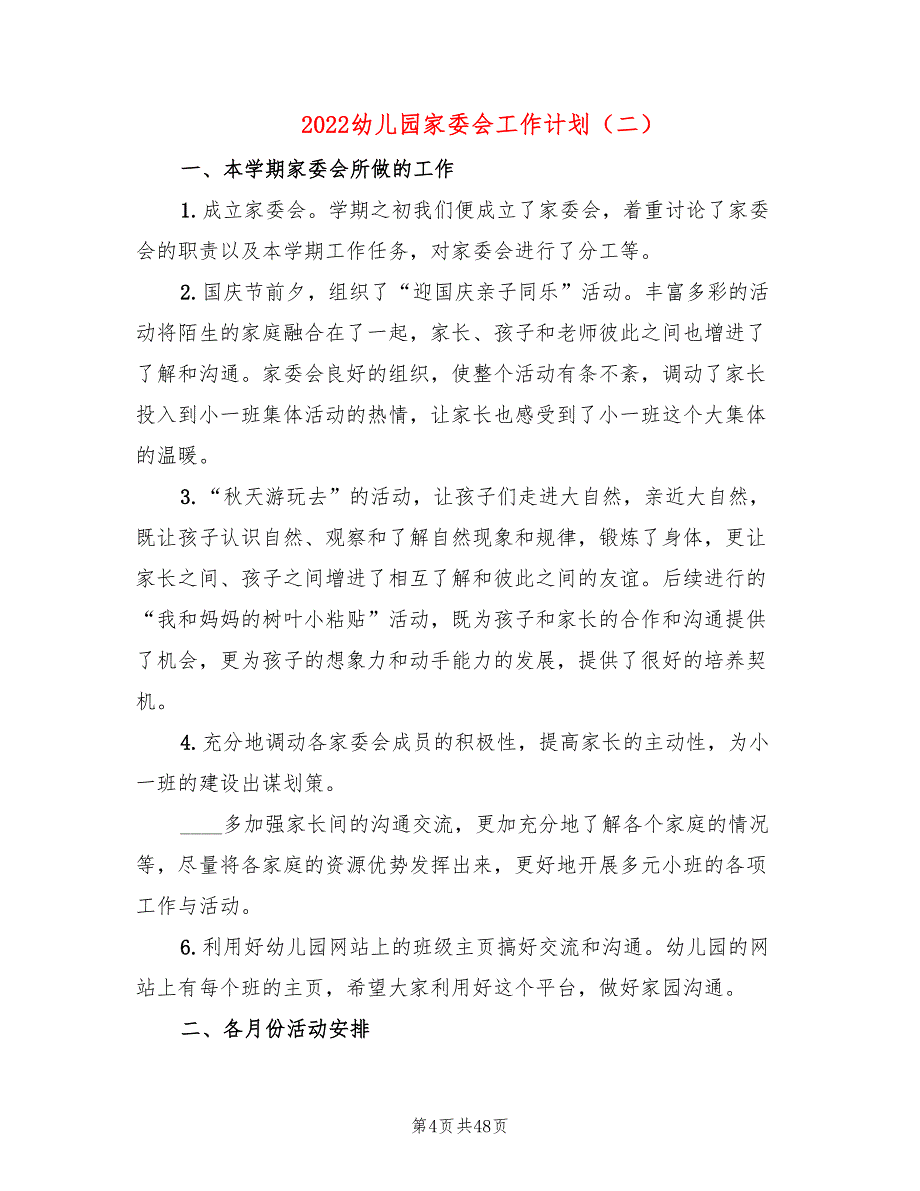 2022幼儿园家委会工作计划（二）
一、本学期家委会所做的工作
1. 成立家委会。学期之初我们便成立了家委会，着重讨论了家委
会的职责以及本学期工作任务，对家委会进行了分工等。
2. 国庆节前夕，组织了“迎国庆亲子同乐”活动。丰富多彩的活
动将陌生的家庭融合在了一起，家长、孩子和老师彼此之间也增进了
了解和沟通。家委会良好的组织，使整个活动有条不紊，调动了家长
投入到小一班集体活动的热情，让家长也感受到了小一班这个大集体
的温暖。
3. “秋天游玩去”的活动，让孩子们走进大自然，亲近大自然，
既让孩子认识自然、观察和了解自然现象和规律，锻炼了身体，更让
家长之间、孩子之间增进了相互了解和彼此之间的友谊。后续进行的
“我和妈妈的树叶小粘贴”活动，既为孩子和家长的合作和沟通提供
了机会，更为孩子的想象力和动手能力的发展，提供了很好的培养契
机。
4. 充分地调动各家委会成员的积极性，提高家长的主动性，为小
一班的建设出谋划策。
____多加强家长间的沟通交流，更加充分地了解各个家庭的情况
等，尽量将各家庭的资源优势发挥出来，更好地开展多元小班的各项
工作与活动。
6. 利用好幼儿园网站上的班级主页搞好交流和沟通。幼儿园的网
站上有每个班的主页，希望大家利用好这个平台，做好家园沟通。
二、各月份活动安排
第4页共48页